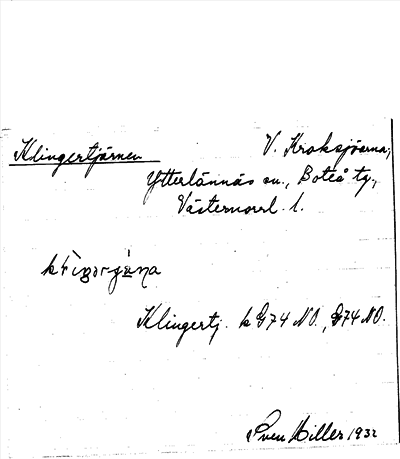 Klingertjärnen V. Kroksjöarna,
Ytterlännäs sn., Boteå tg.,
Västernorrl. l.
Klingertj. k G74 NO., G74 NO.
Sven Hiller 1932